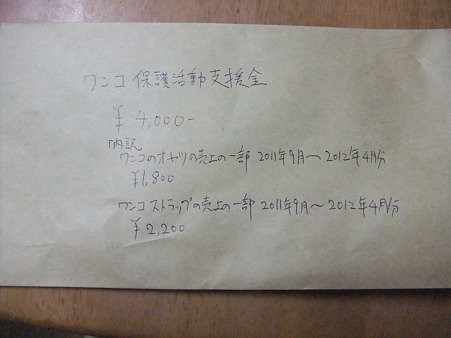 ワンコ 保護活動支援金
¥ 4,000-
内訳
ワンコのオヤツの売上の一部 2011年9月〜2012年4月分
¥1,800
ワンコストラップの売上の一部 2011年9月〜2012年4月分
¥2,200